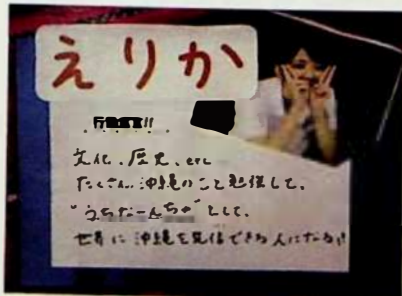 えりか
文化、歴史、etc
たくさん沖縄のこと勉強して、
"うちなーんちゅ"として、
世界に沖縄を発信できる人になる!!